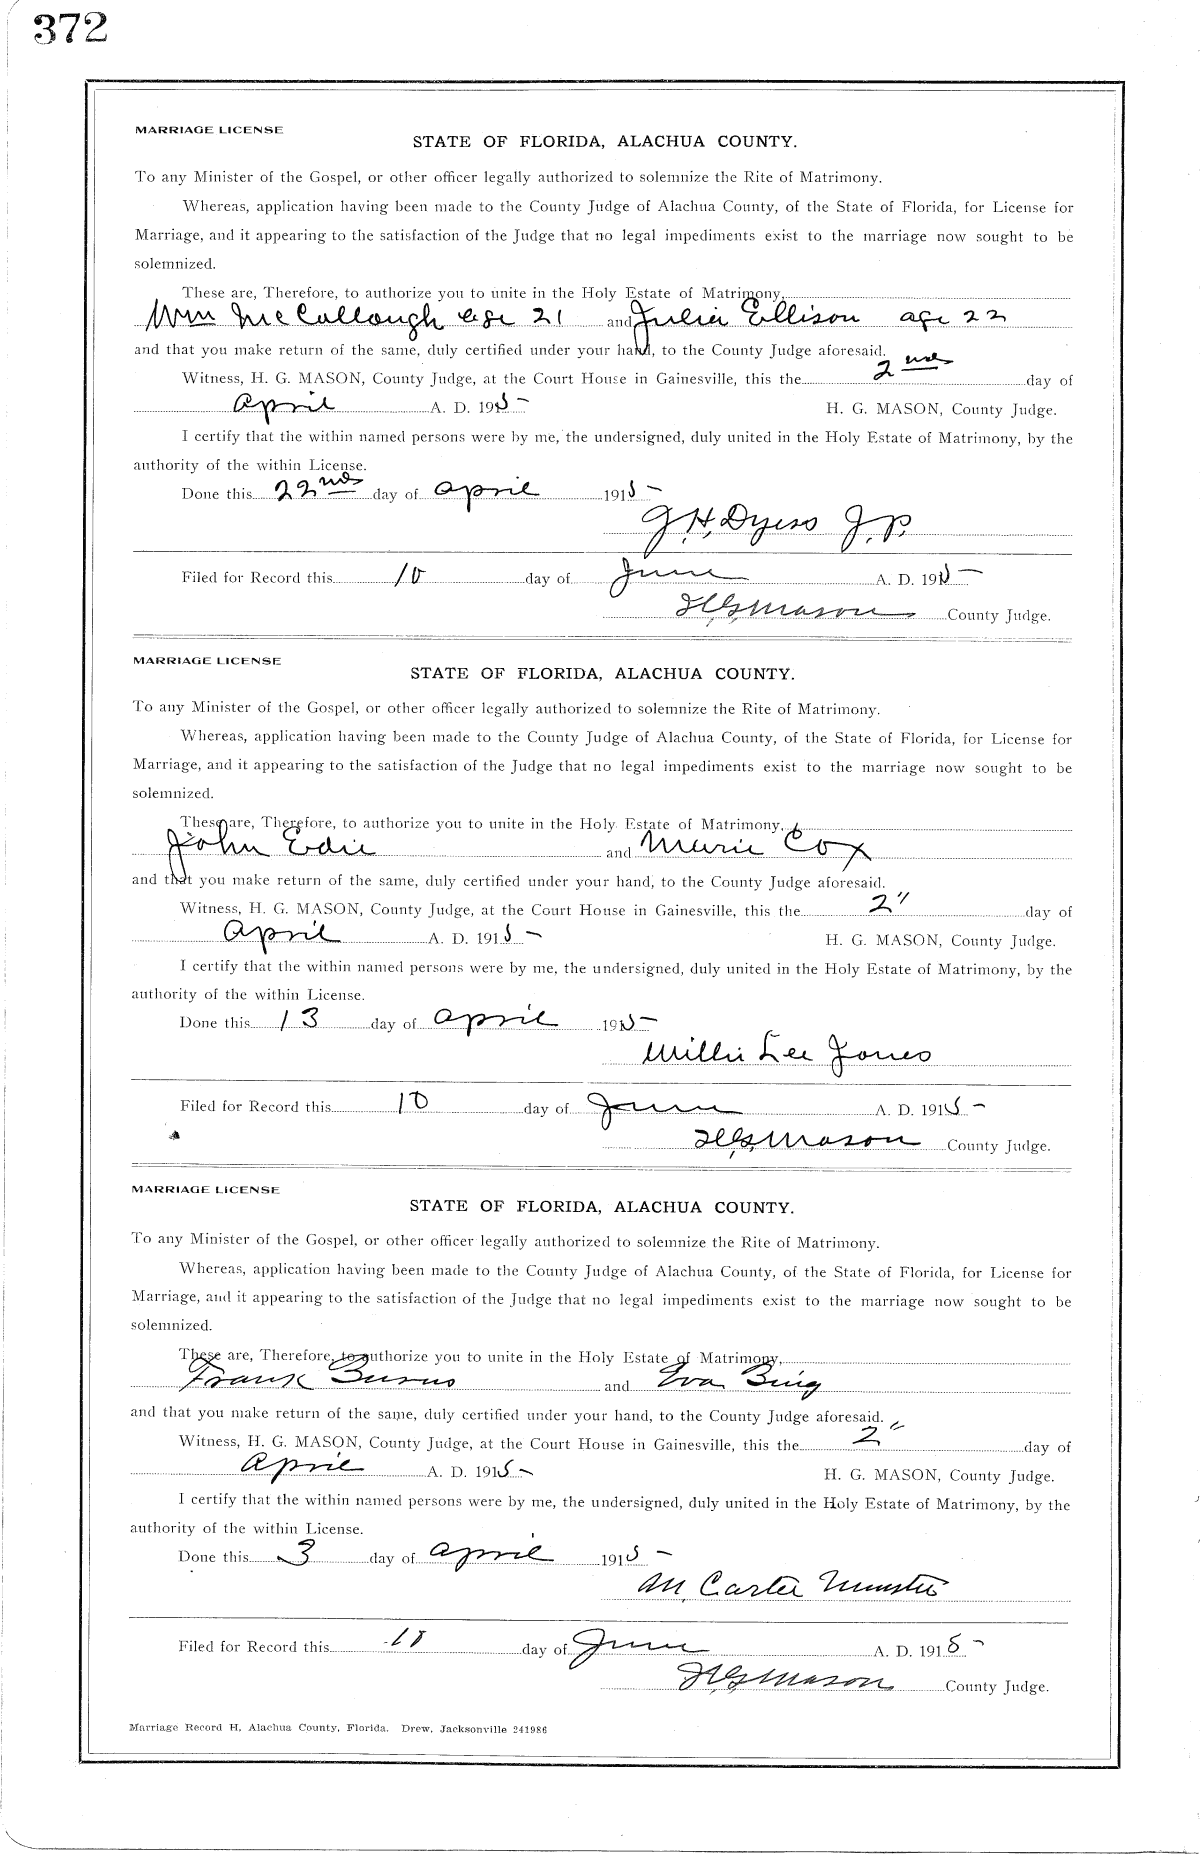 372
MARRIAGE LICENSE
STATE OF FLORIDA, ALACHUA COUNTY.
To any Minister of the Gospel, or other officer legally authorized to solemnize the Rite of Matrimony.
Whereas, application having been made to the County Judge of Alachua County, of the State of Florida, for License for
Marriage, and it appearing to the satisfaction of the Judge that no legal impediments exist to the marriage now sought to be
solemnized.
These are, Therefore, to authorize you to unite in the Holy Estate of Matrimony,
Wm McCollough age 21 and Julia Ellison age 22
and that you make return of the same, duly certified under your hand, to the County Judge aforesaid.
Witness, H. G. MASON, County Judge, at the Court House in Gainesville, this the 2nd day of
April A. D. 1915 H. G. MASON, County Judge.
I certify that the within named persons were by me, the undersigned, duly united in the Holy Estate of Matrimony, by the
authority of the within License.
Done this 22nd day of April 1915
J.H. Dyess J.P.
Filed for Record this 10 day of June A. D. 1915
H.G. Mason County Judge.
MARRIAGE LICENSE
STATE OF FLORIDA, ALACHUA COUNTY.
To any Minister of the Gospel, or other officer legally authorized to solemnize the Rite of Matrimony.
Whereas, application having been made to the County Judge of Alachua County, of the State of Florida, for License for
Marriage, and it appearing to the satisfaction of the Judge that no legal impediments exist to the marriage now sought to be
solemnized.
These are, Therefore, to authorize you to unite in the Holy Estate of Matrimony,
John Edie and Marie Cox
and that you make return of the same, duly certified under your hand, to the County Judge aforesaid.
Witness, H. G. MASON, County Judge, at the Court House in Gainesville, this the 2" day of
April A. D. 1915 H. G. MASON, County Judge.
I certify that the within named persons were by me, the undersigned, duly united in the Holy Estate of Matrimony, by the
authority of the within License.
Done this 13 day of April 1915
Willie Lee Jones
Filed for Record this 10 day of June A. D. 1915
H.G. Mason County Judge.
MARRIAGE LICENSE
STATE OF FLORIDA, ALACHUA COUNTY.
To any Minister of the Gospel, or other officer legally authorized to solemnize the Rite of Matrimony.
Whereas, application having been made to the County Judge of Alachua County, of the State of Florida, for License for
Marriage, and it appearing to the satisfaction of the Judge that no legal impediments exist to the marriage now sought to be
solemnized.
These are, Therefore, to authorize you to unite in the Holy Estate of Matrimony,
Frank Burns and Eva Bing
and that you make return of the same, duly certified under your hand, to the County Judge aforesaid.
Witness, H. G. MASON, County Judge, at the Court House in Gainesville, this the 2" day of
April A. D. 1915 H. G. MASON, County Judge.
I certify that the within named persons were by me, the undersigned, duly united in the Holy Estate of Matrimony, by the
authority of the within License.
Done this 3 day of April 1915
M. Carter Minister
Filed for Record this 10 day of June A. D. 1915
H.G. Mason County Judge.
Marriage Record H, Alachua County, Florida. Drew, Jacksonville 241986